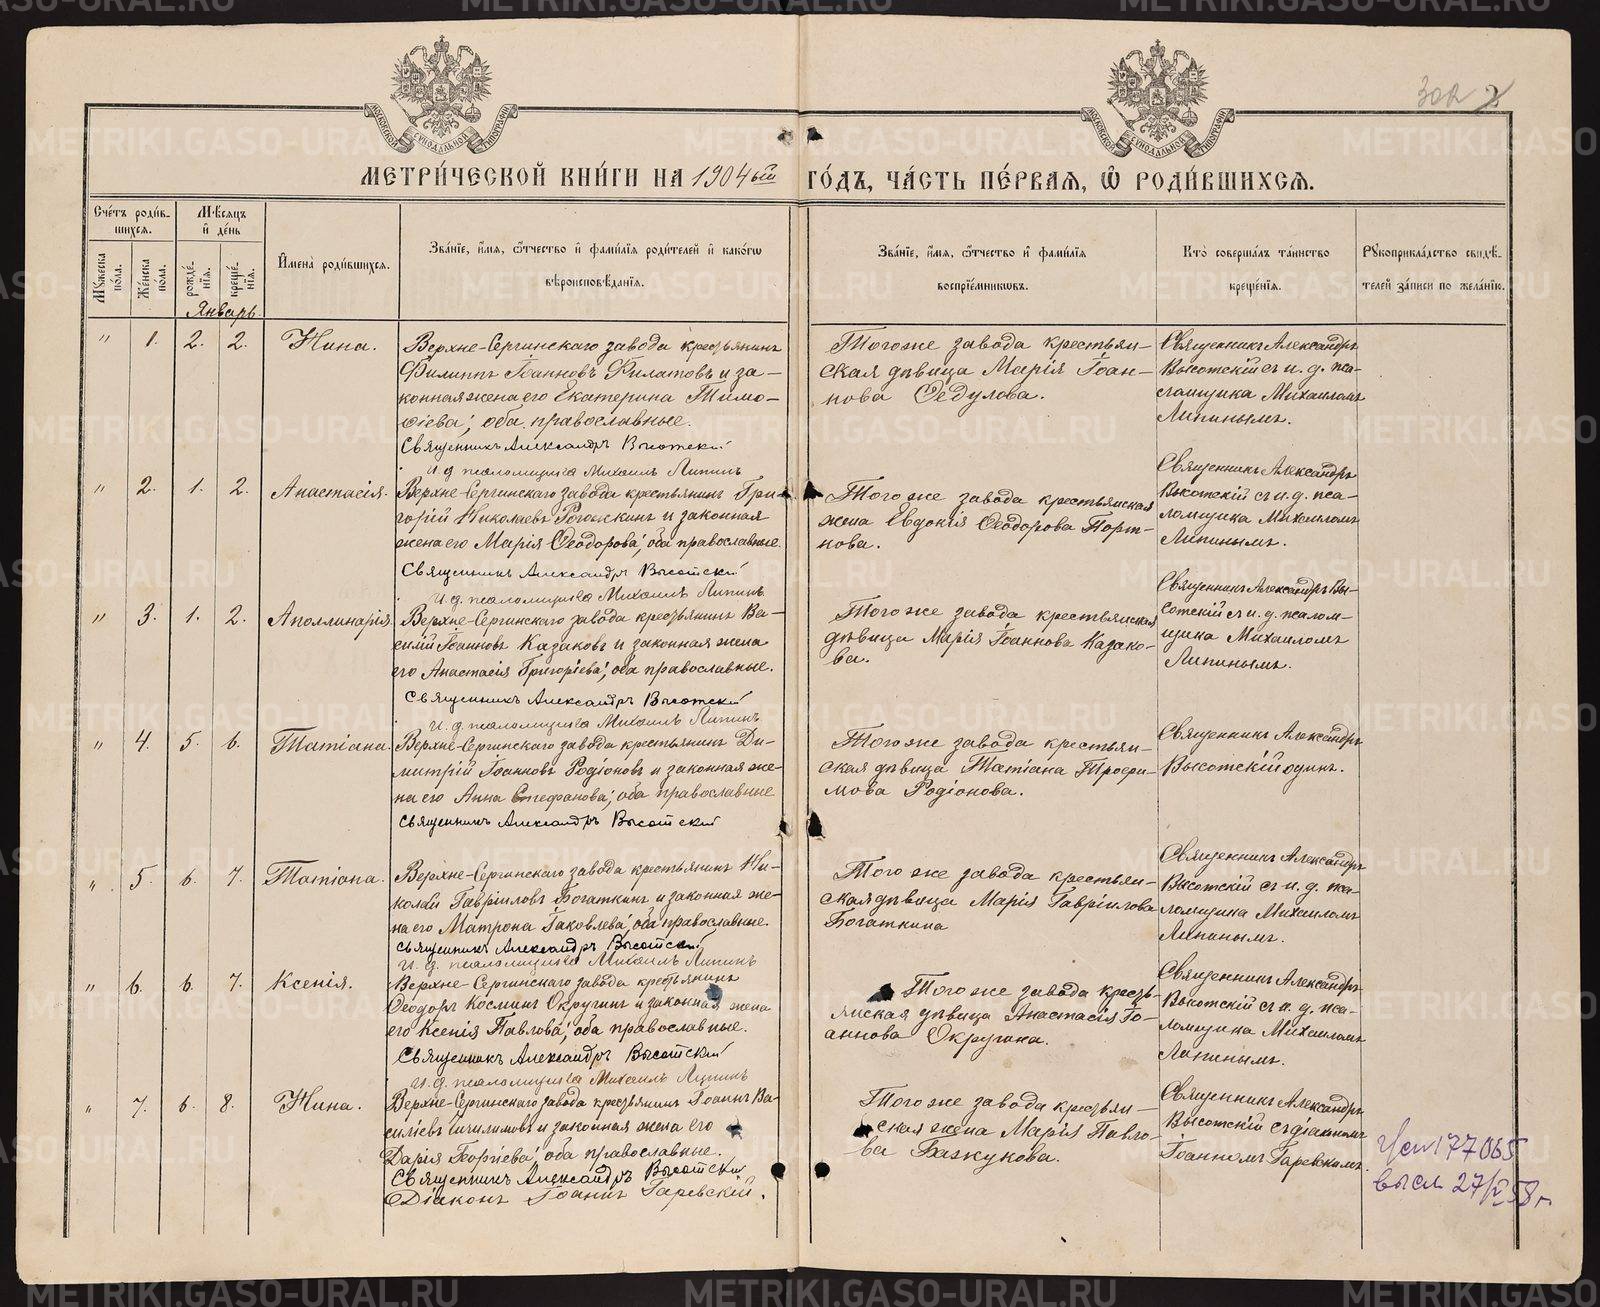 МЕТРИ́ЧЕСКОЙ КНИ́ГИ НА 1904ый ГО́ДЪ, ЧА́СТЬ ПЕ́РВАЯ, Ѡ҆ РОДИ́ВШИХСЯ.
Сче́тъ роди́в-
шихся.
Мꙋ́жеска
пола.
Же́нска
пола.
Мѣсяцъ
и҆ де́нь
рожде́-
нїя.
креще́-
нїя.
И҆мена̀ роди́вшихся.
Зва́нїе, и҆́мя, ѻ҆́тчество и҆ фами́лїя роди́телей и҆ како́гѡ
вѣроисповѣ́данїя.
Зва́нїе, и҆́мя, ѻ҆́тчество и҆ фами́лїя
воспрїе́мникѡвъ.
Кто̀ соверша́лъ та́инство
креще́нїя.
Рꙋкоприкла́дство свидѣ́-
телей за́писи по жела́нїю.
Январь
" 1. 2. 2. Нина.
Верхне-Сергинскаго завода крестьянинъ
Филиппъ Іоанновъ Филатовъ и за-
конная жена его Екатерина Тимо-
ѳіева; оба православные.
Священникъ Александръ Высотскій
И. д. псаломщика Михаилъ Липинъ
Того же завода крестьян-
ская дѣвица Марія Іоан-
нова Ѳедулова.
Священникъ Александръ
Высотскій съ и. д. пса-
ломщика Михаиломъ
Липинымъ.
" 2. 1. 2. Анастасія.
Верхне-Сергинскаго завода крестьянинъ Гри-
горій Николаевъ Рогожкинъ и законная
жена его Марія Ѳеодорова; оба православные.
Священникъ Александръ Высотскій
И. д. псаломщика Михаилъ Липинъ
Того же завода крестьянская
жена Евдокія Ѳеодорова Порт-
нова.
Священникъ Александръ
Высотскій съ и. д. пса-
ломщика Михаиломъ
Липинымъ.
" 3. 1. 2. Аполлинарія.
Верхне-Сергинскаго завода крестьянинъ Ва-
силій Іоанновъ Казаковъ и законная жена
его Анастасія Григоріева; оба православные.
Священникъ Александръ Высотскій
И. д. псаломщика Михаилъ Липинъ
Того же завода крестьянская
дѣвица Марія Іоаннова Казако-
ва.
Священникъ Александръ Вы-
сотскій съ и. д. псалом-
щика Михаиломъ
Липинымъ.
" 4. 5. 6. Татіана.
Верхне-Сергинскаго завода крестьянинъ Ди-
митрій Іоанновъ Родіоновъ и законная же-
на его Анна Стефанова; оба православные
Священникъ Александръ Высотскій
Того же завода крестьян-
ская дѣвица Татіана Трофи-
мова Родіонова.
Священникъ Александръ
Высотскій одинъ.
" 5. 6. 7. Татіана.
Верхне-Сергинскаго завода крестьянинъ Ни-
колай Гавріиловъ Богаткинъ и законная же-
на его Матрона Іаковлева; оба православные.
Священникъ Александръ Высотскій
И. д. псаломщика Михаилъ Липинъ
Того же завода крестьян-
ская дѣвица Марія Гавріилова
Богаткина
Священникъ Александръ
Высотскій съ и. д. пса-
ломщика Михаиломъ
Липинымъ.
" 6. 6. 7. Ксенія.
Верхне-Сергинскаго завода крестьянинъ
Ѳеодоръ Косминъ Округинъ и законная жена
его Ксенія Павлова; оба православные.
Священникъ Александръ Высотскій
И. д. псаломщика Михаилъ Липинъ
Того же завода кресть-
янская дѣвица Анастасія Іо-
аннова Округина.
Священникъ Александръ
Высотскій съ и. д. пса-
ломщика Михаиломъ
Липинымъ.
" 7. 6. 8. Нина.
Верхне-Сергинскаго завода крестьянинъ Іоаннъ Ва-
силіевъ и законная жена его
Дарія Георгіева; оба православные.
Священникъ Александръ Высотскій
Діаконъ Іоаннъ Гаревскій.
Того же завода крестьян-
ская жена Марія Павло-
ва Бажукова.
Священникъ Александръ
Высотскій съ діакономъ
Іоанномъ Гаревскимъ.
177065
высл 27/V 58 г.
METRIKI.GASO-URAL.RU